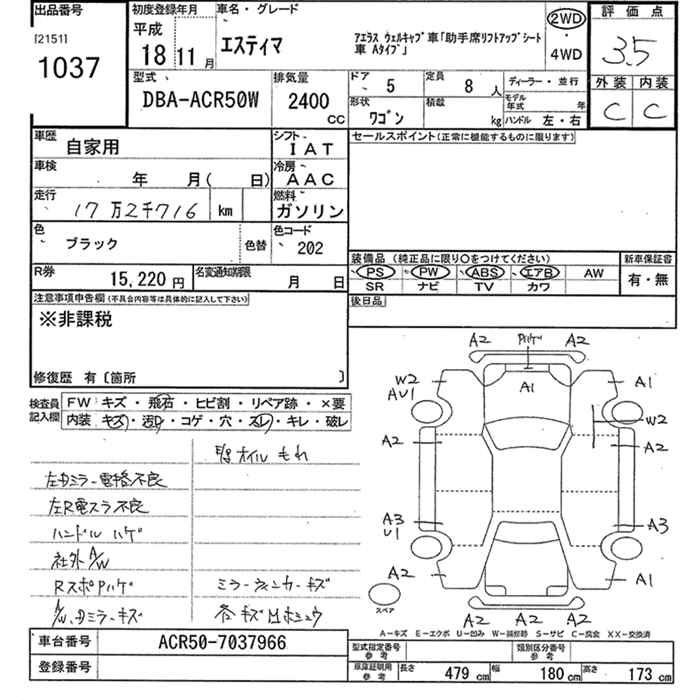 出品番号
[2151]
1037
初度登録年月
平成
18 11 月
車名・グレード
エスティマ
アエラス ウェルキャブ車「助手席リフトアップシート
車 Aタイプ」
2WD
・
4WD
評価点
3.5
外装 内装
C C
型式
DBA-ACR50W
排気量
2400
CC
ドア
5
定員
8 人
形状
ワゴン
積載
kg
ディーラー・並行
モデル
年式 年
ハンドル 左・右
車歴
自家用
シフト
IAT
車検
年 月( 日)
冷房
AAC
走行
17万2千716 km
燃料
ガソリン
色
ブラック
色替
色コード
202
R券
15,220 円
名変通知期限
月 日
セールスポイント(正常に機能するものに限ります)
装備品 (純正品に限り○をつけてください)
PS PW ABS エアB AW
SR ナビ TV カワ
新車保証書
有・無
後日品
注意事項申告欄(不具合内容等は具体的に記入して下さい)
※非課税
修復歴 有〔箇所 〕
検査員
記入欄
FW キズ・飛石・ヒビ割・リペア跡・×要
内装 キズ・汚れ・コゲ・穴・スレ・キレ・破レ
左右ミラー電格不良
左R電スラ不良
ハンドルハゲ
社外A/W
RスポPハゲ
A/W、Dミラーキズ
オイルもれ
ミラーウィンカーキズ
各キズ
A2 Pハゲ A2
W2
AU1
A1
A1
W2
A2
A2
A3
U1
A3
A2
A1
A2 A2
A2
スペア
A-キズ E-エクボ U-凹み W-補修跡 S-サビ C-腐食 XX-交換済
車台番号
ACR50-7037966
登録番号
型式指定番号
参考
類別区分番号
参考
車庫証明用
参考
長さ 479 cm 幅 180 cm 高さ 173 cm